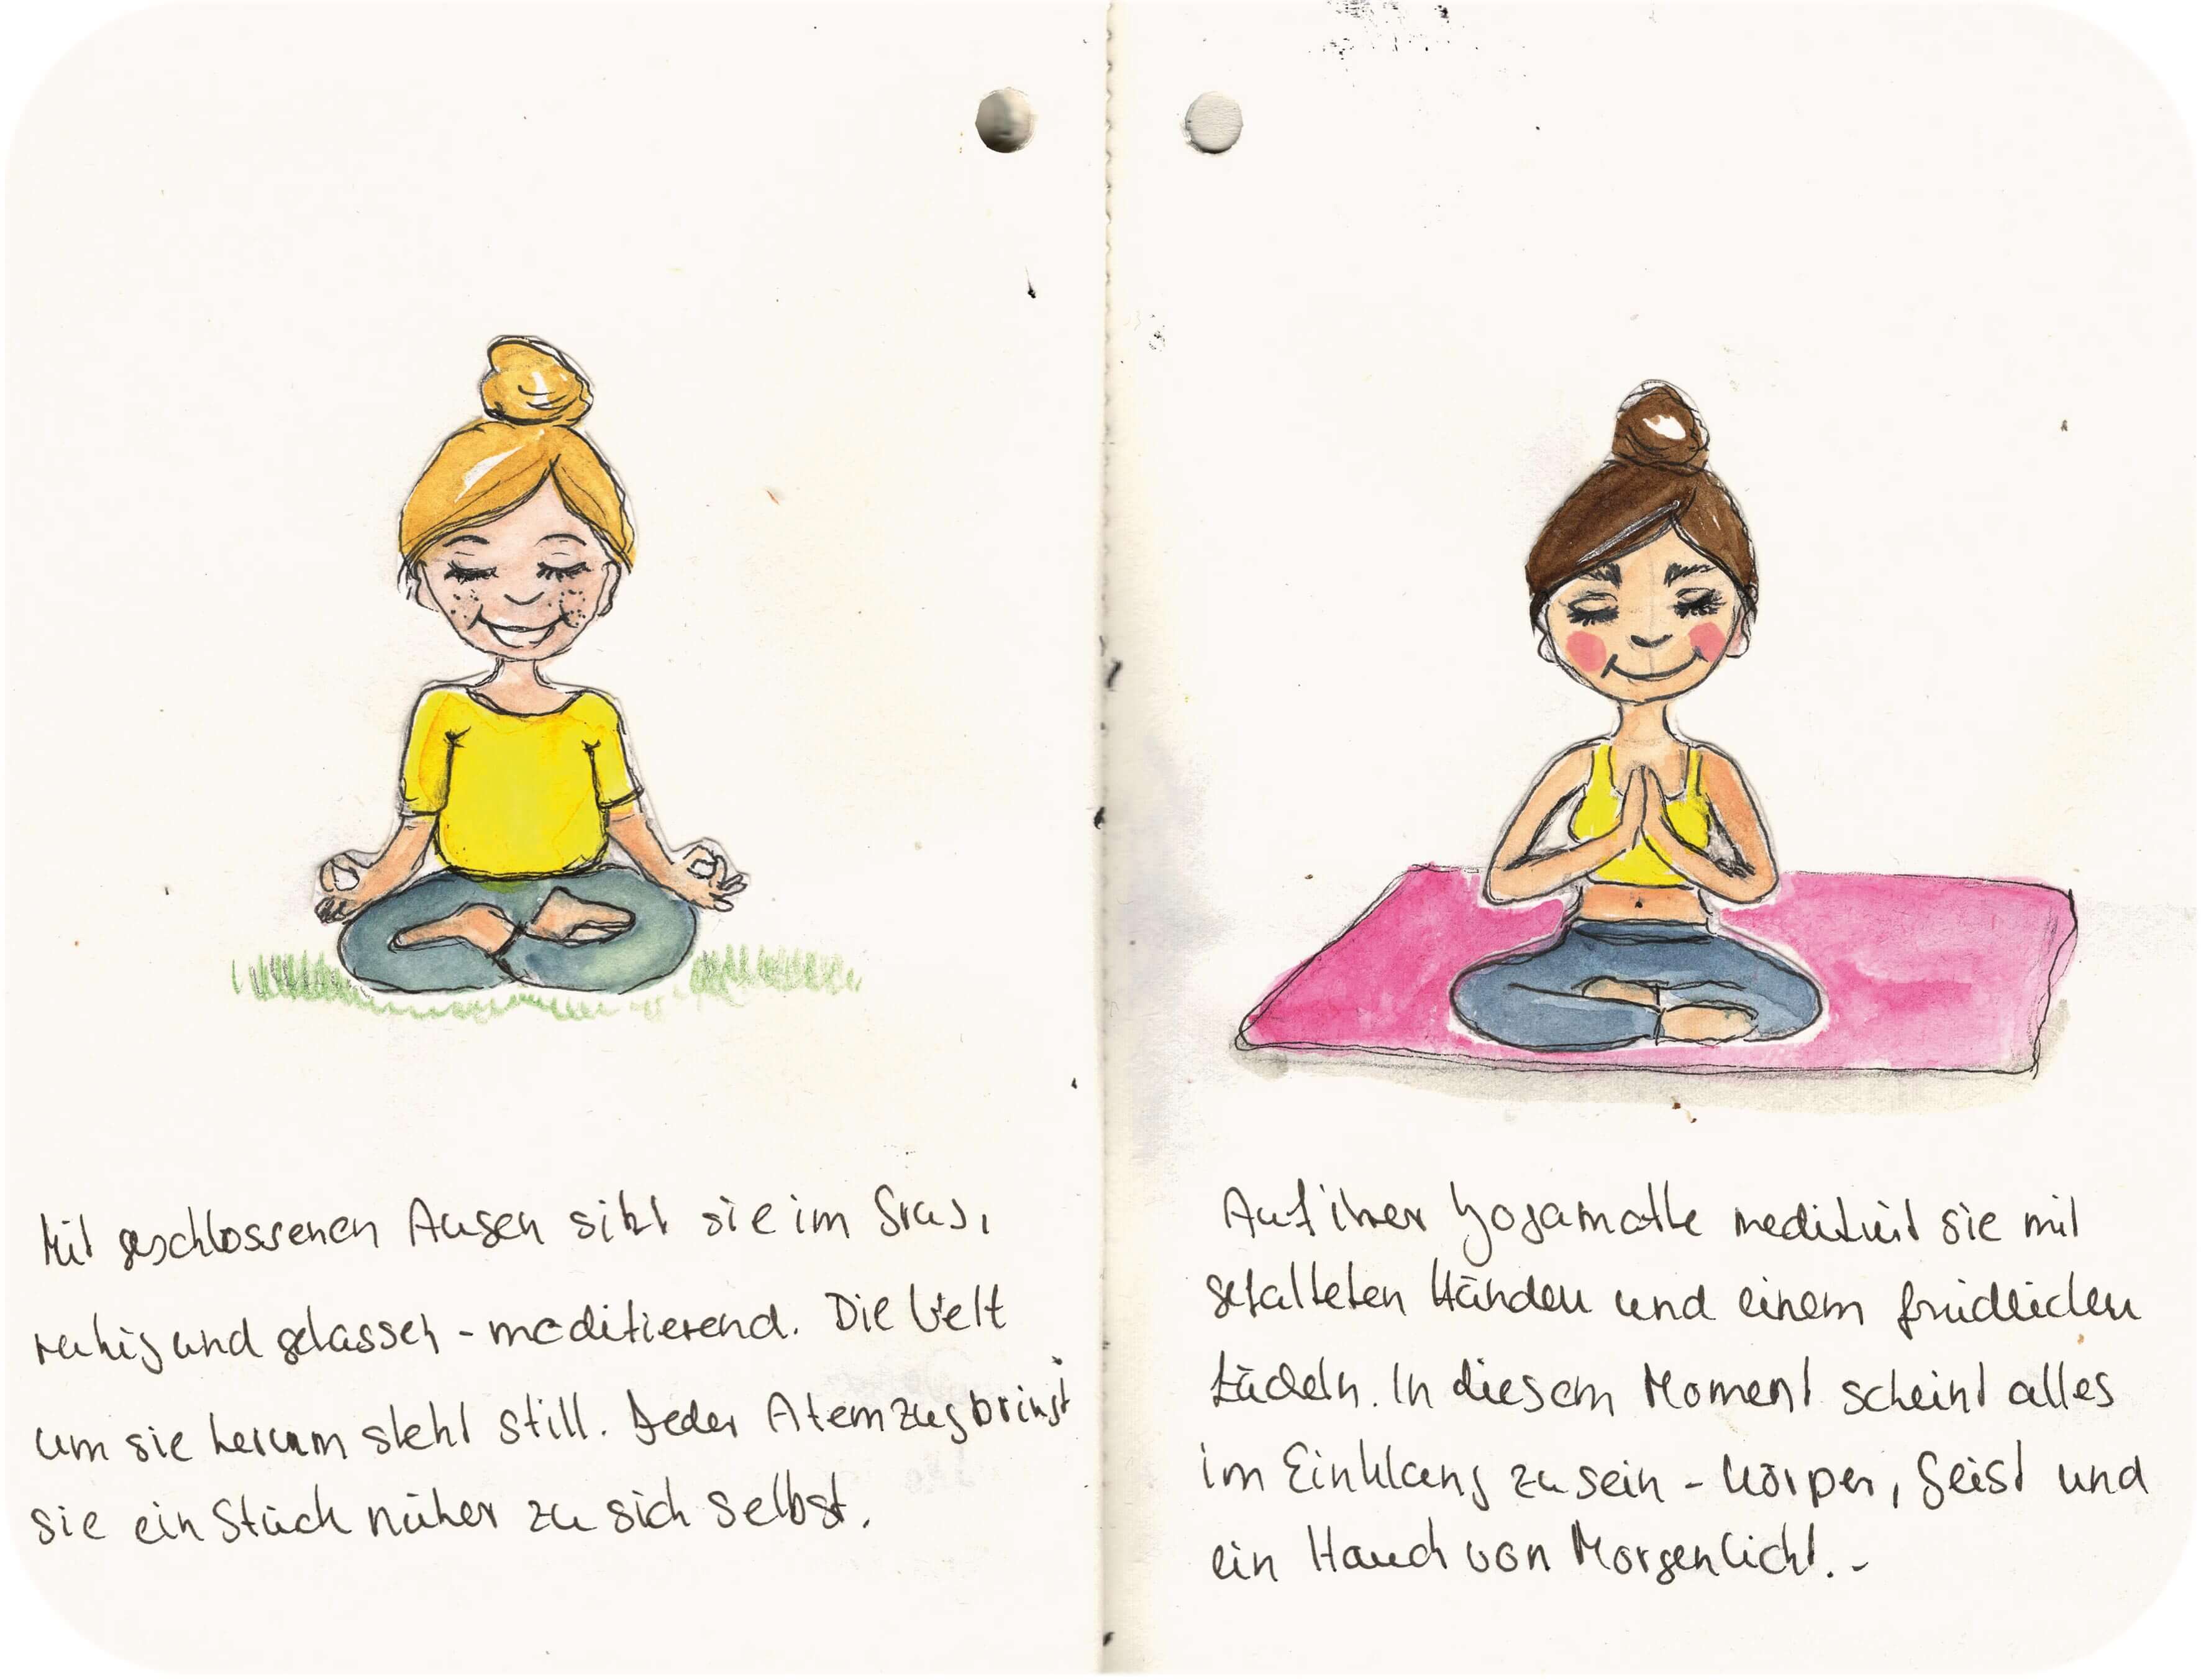 Mit geschlossenen Augen sitzt sie im Gras,
ruhig und gelassen - meditierend. Die Welt
um sie herum steht still. Jeder Atemzug bringt
sie ein Stück näher zu sich selbst.
Auf ihrer Yogamatte meditiert sie mit
gefalteten Händen und einem friedlichen
Lächeln. In diesem Moment scheint alles
im Einklang zu sein - Körper, Geist und
ein Hauch von Morgenlicht. -